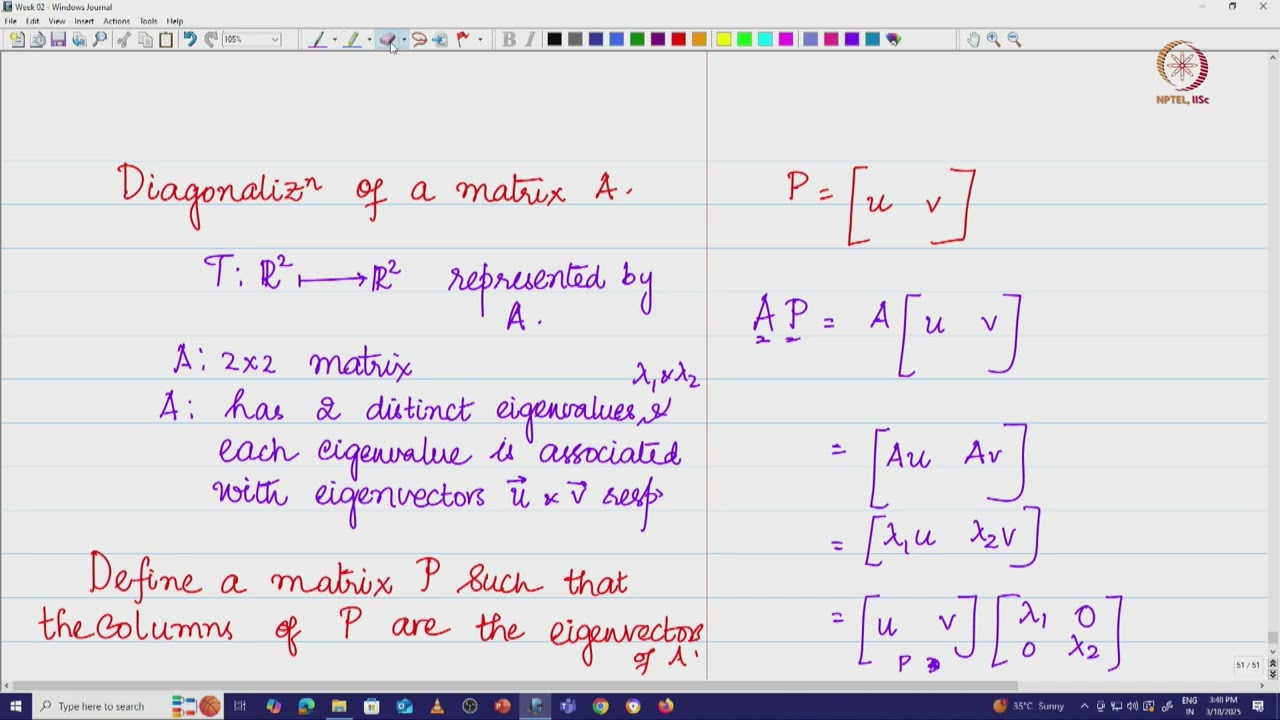 Week 02 - Windows Journal
File Edit View Insert Actions Tools Help
105%
B I
NPTEL, IISc
Diagonalizⁿ of a matrix A.
T: ℝ² ⟼ ℝ² represented by
A.
A: 2×2 matrix
λ₁ & λ₂
A: has 2 distinct eigenvalues, &
each eigenvalue is associated
with eigenvectors u⃗ & v⃗ resp
Define a matrix P such that
the columns of P are the eigenvectors
of A.
P = [u v]
A P = A [u v]
2 2
= [Au Av]
= [λ₁u λ₂v]
= [u v] [λ₁ 0
0 λ₂]
P
51 / 51
Type here to search
35°C Sunny
ENG
IN
3:48 PM
3/18/2025